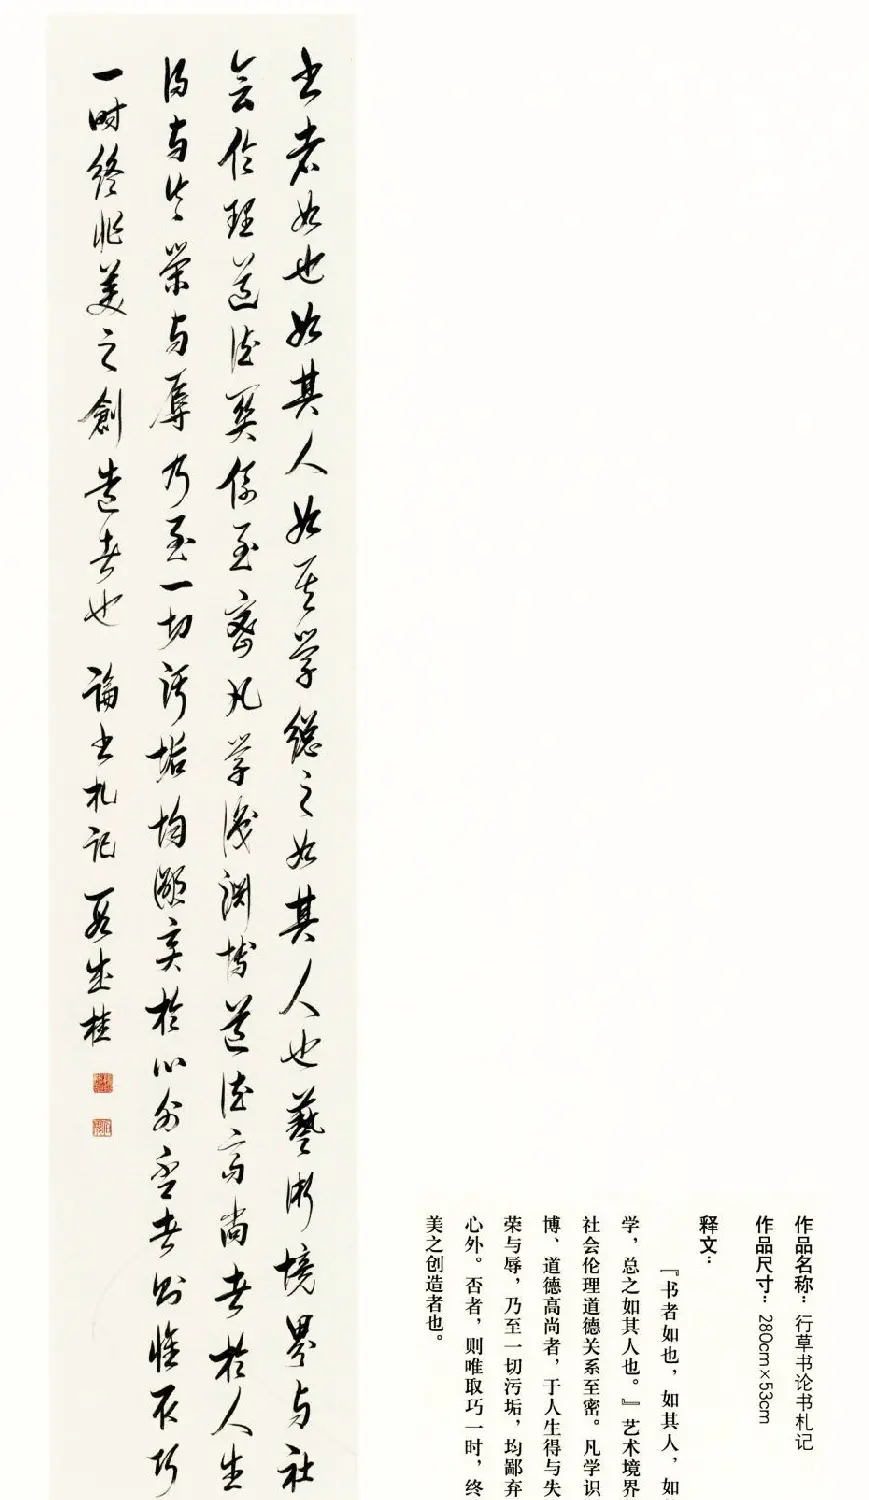 作品名称：行草书论书札记
作品尺寸：280cm×53cm
释文：
『书者如也，如其人，如
学，总之如其人也。』艺术境界
社会伦理道德关系至密。凡学识
博、道德高尚者，于人生得与失
荣与辱，乃至一切污垢，均鄙弃
心外。否者，则唯取巧一时，终
美之创造者也。
书者如也如其人如其学總之如其人也藝術境界与社
会伦理道德関係至密凡学识渊博道德高尚者於人生
得与失荣与辱乃至一切污垢均鄙弃於心外否者则惟取巧
一时终非美之創造者也 論书札记 段成桂